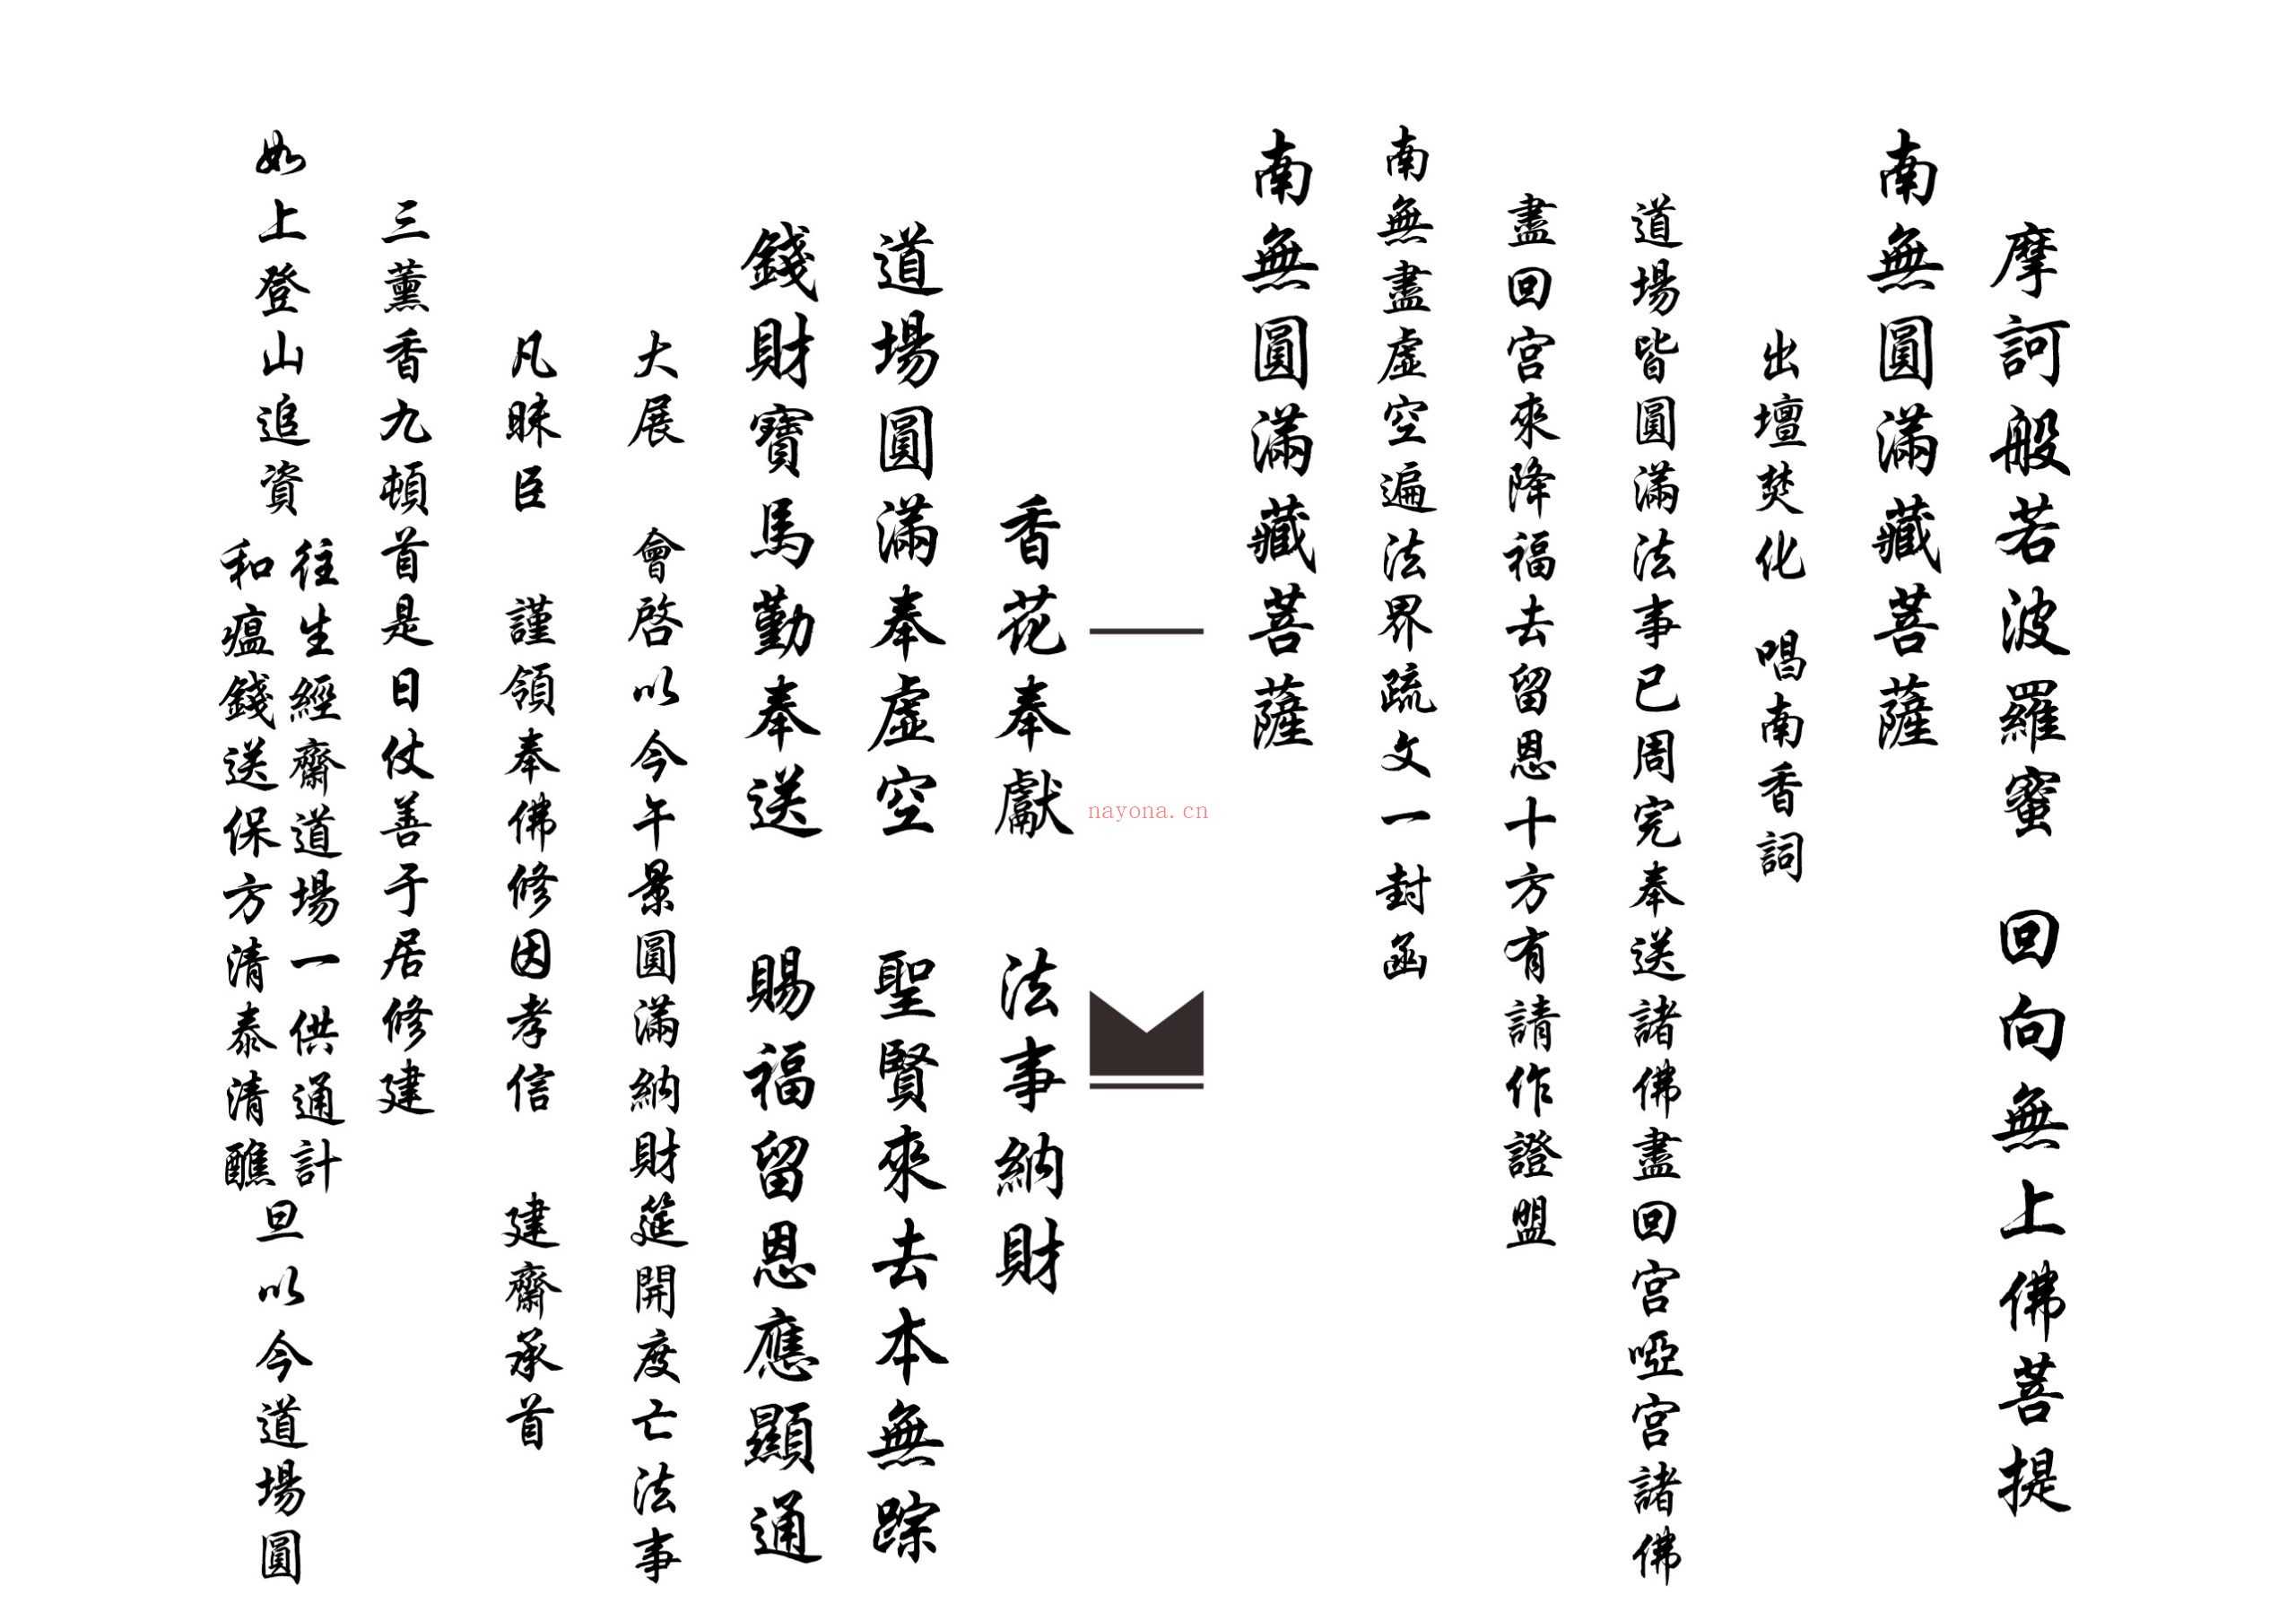 摩訶般若波羅蜜　回向無上佛菩提
南無圓滿藏菩薩
出壇焚化　唱南香詞
道場皆圓滿法事已周完奉送諸佛盡回宮啞宮諸佛
盡回宮來降福去留恩十方有請作證盟
南無盡虛空遍法界疏文一封函
南無圓滿藏菩薩
nayona.cn
香花奉獻　法事納財
道場圓滿奉虛空　聖賢來去本無踪
錢財寶馬勤奉送　賜福留恩應顯通
大展　會啓以今午景圓滿納財筵開度亡法事
凡昧臣　謹領奉佛修因孝信　建齋承首
三薰香九頓首是日仗善于居修建
如上登山追資
往生經齋道場一供通計
和瘟錢送保方清泰清醮
旦以今道場圓